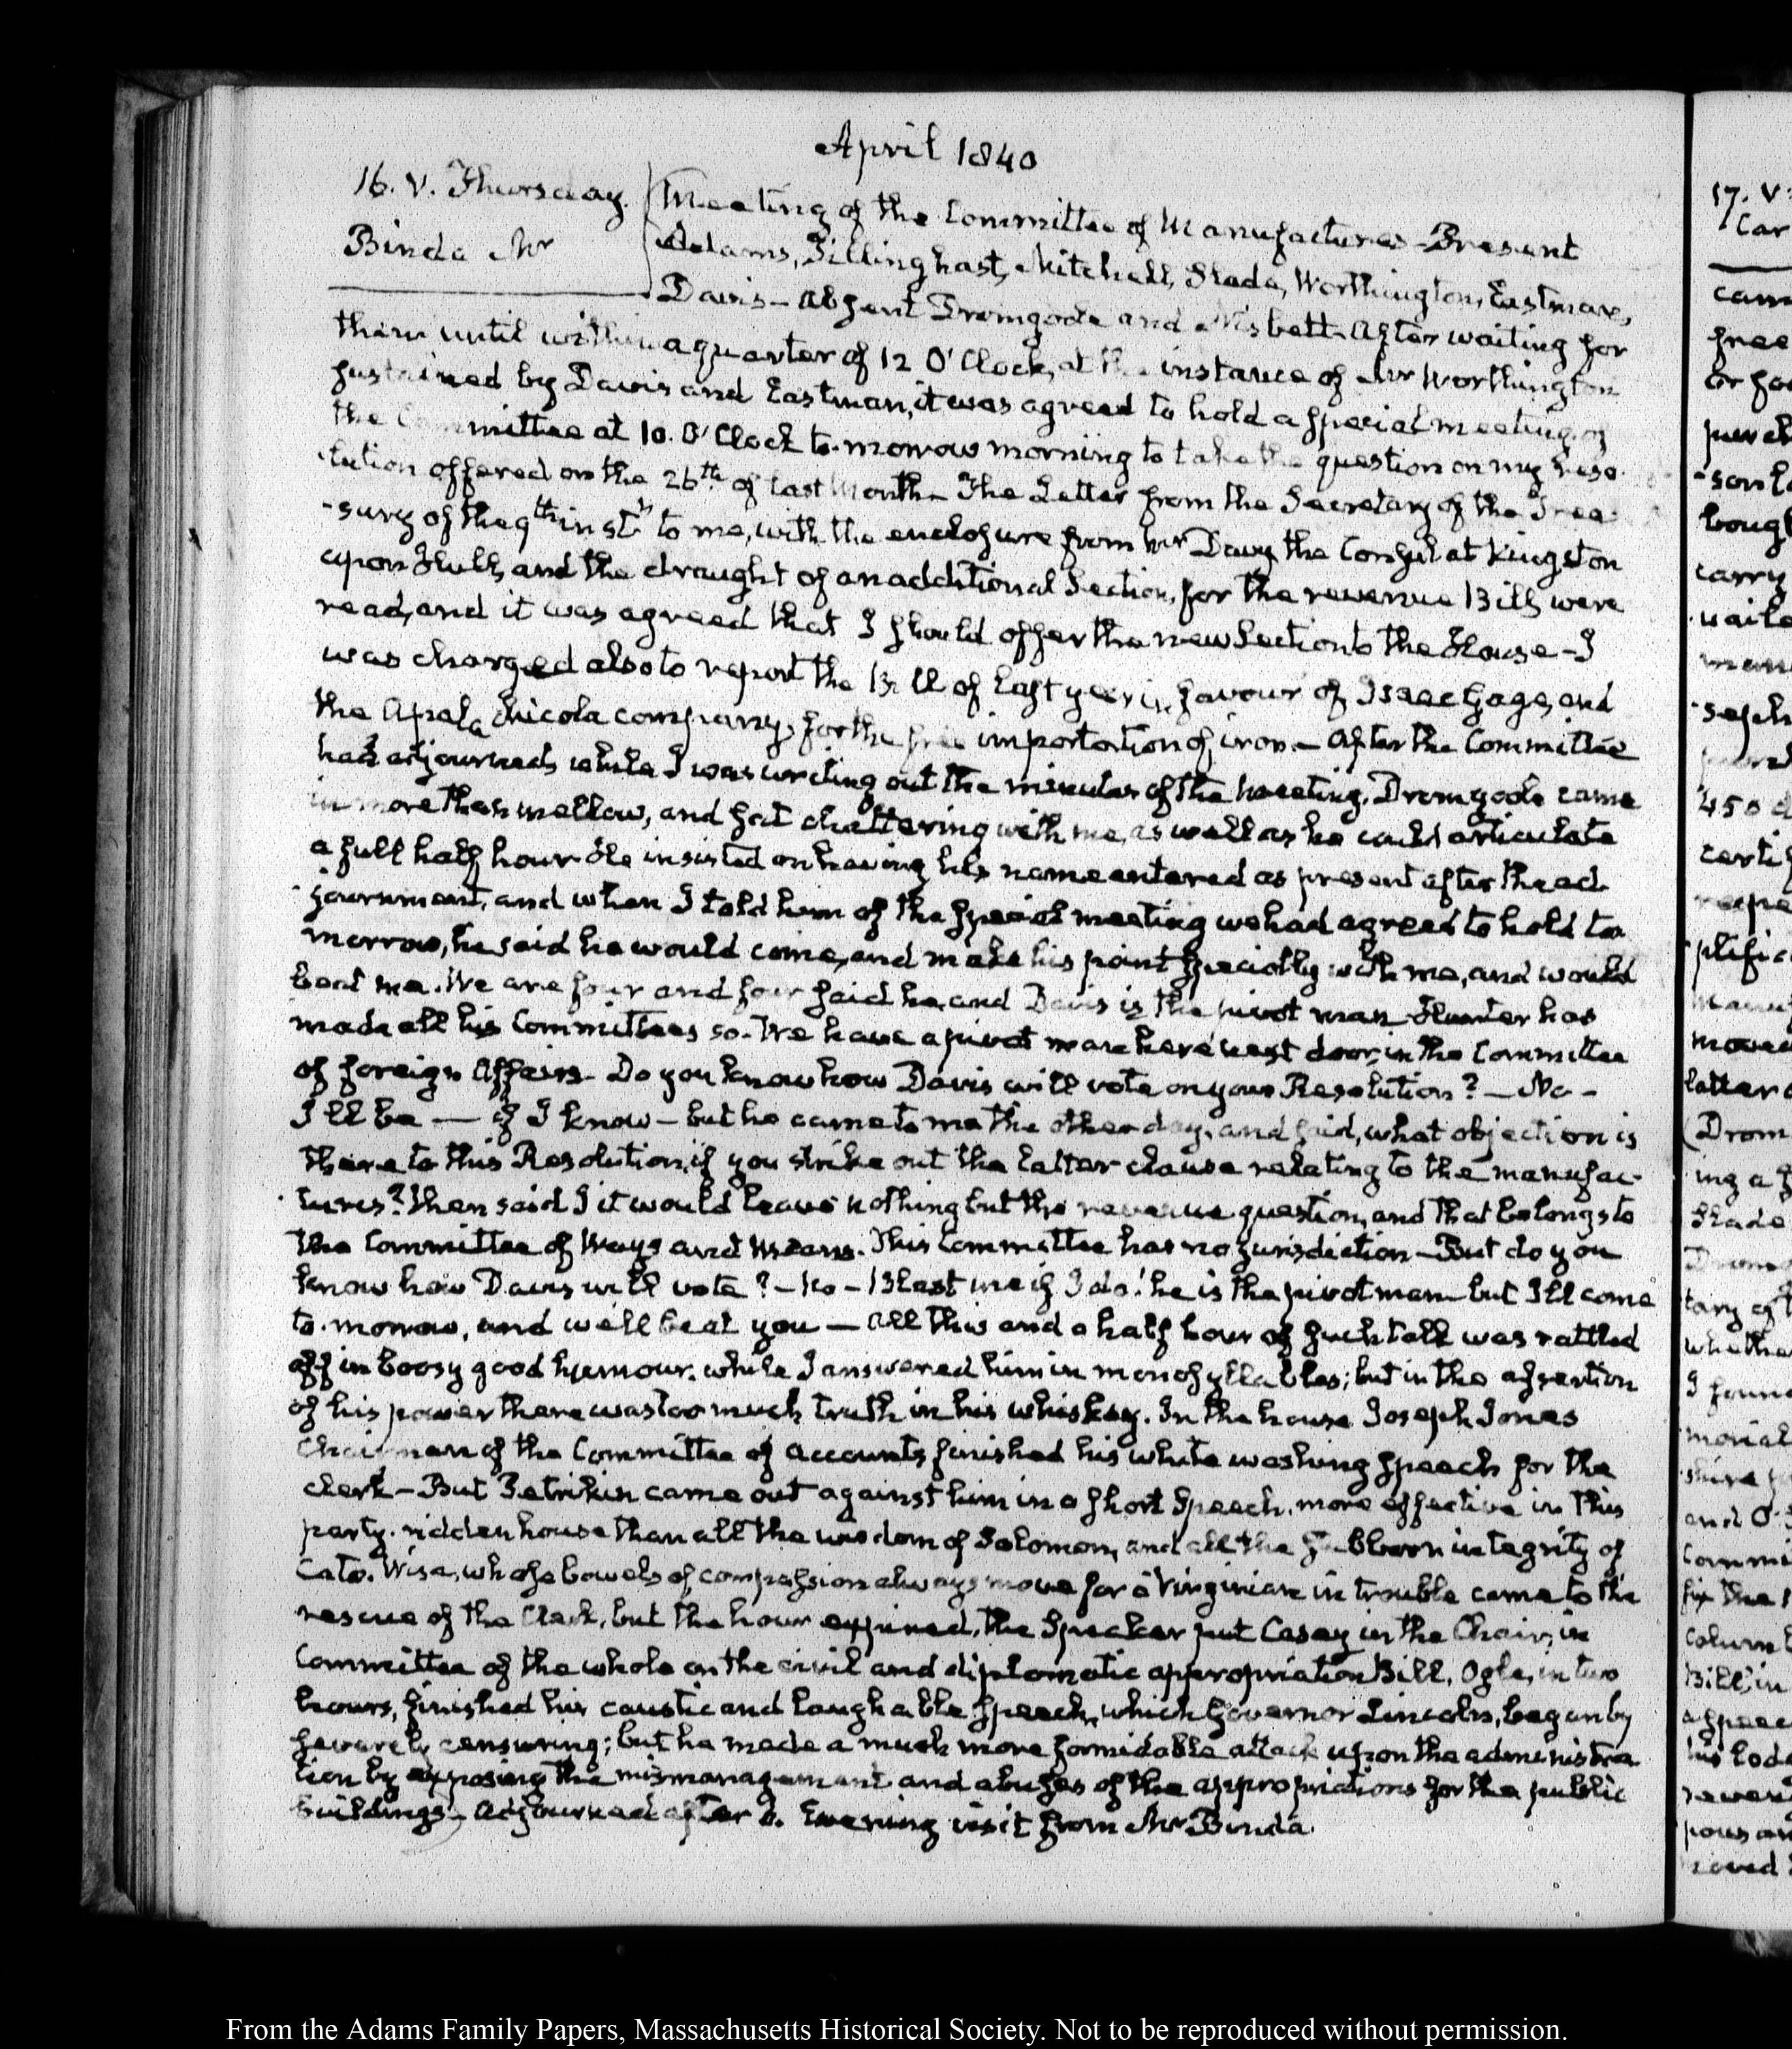 April 1840
16. V. Thursday.
Binda Mr
Meeting of the Committee of Manufactures – Present
Adams, Tillinghast, Mitchell, Slade, Worthington, Eastman,
Davis – Absent Dromgoole and Nisbett. After waiting for
them until within a quarter of 12 O'Clock, at the instance of Mr Worthington
sustained by Davis and Eastman, it was agreed to hold a special meeting of
the Committee at 10. O'Clock to-morrow morning to take the question on my reso-
-lution offered on the 26th of last Month – The Letter from the Secretary of the Trea-
-sury of the 9th instt to me, with the enclosure from Mr Davy the Consul at Kingston
upon Hull, and the draught of an additional Section, for the revenue Bill, were
read, and it was agreed that I should offer the new Section to the House – I
was charged also to report the Bill of last year in favour of Isaac Gage, and
the Apalachicola company, for the free importation of iron. – After the Committee
had adjourned, while I was writing out the minutes of the meeting, Dromgoole came
in more than mellow, and sat chattering with me, as well as he could articulate
a full half hour. He insisted on having his name entered as present after the ad-
-journment, and when I told him of the special meeting we had agreed to hold to-
morrow, he said he would come, and make his point specially with me, and would
beat me. We are four and four said he, and Davis is the pivot man – Hunter has
made all his Committees so. We have a pivot man here next door, in the Committee
of foreign Affairs – Do you know how Davis will vote on your Resolution? – No –
I'll be — if I know – but he came to me the other day, and said, what objection is
there to this Resolution, if you strike out the latter clause relating to the manufac-
-tures? Then said I it would leave nothing but the revenue question, and that belongs to
the Committee of Ways and Means. This Committee has no jurisdiction – But do you
know how Davis will vote? – No – Blast me if I do! he is the pivot man – but I'll come
to-morrow, and we'll beat you — All this and a half hour of such talk was rattled
off in boosy good humour, while I answered him in monosyllables; but in the assertion
of his power there was too much truth in his whiskey. In the house Joseph Jones
Chairman of the Committee of Accounts finished his white washing speech for the
Clerk – But Petrikin came out against him in a short Speech, more effective in this
party-ridden house than all the wisdom of Solomon, and all the stubborn integrity of
Cato. Wise, whose bowels of compassion always move for a Virginian in trouble came to the
rescue of the Clerk, but the hour expired, the Speaker put Casey in the Chair, in
Committee of the whole on the civil and diplomatic appropriation Bill. Ogle, in two
hours, finished his caustic and laughable speech, which Governor Lincoln, began by
severely censuring; but he made a much more formidable attack upon the administra-
tion by exposing the mismanagement and abuses of the appropriations for the public
buildings – Adjourned after 6. Evening visit from Mr Binda
17. V
Car
From the Adams Family Papers, Massachusetts Historical Society. Not to be reproduced without permission.